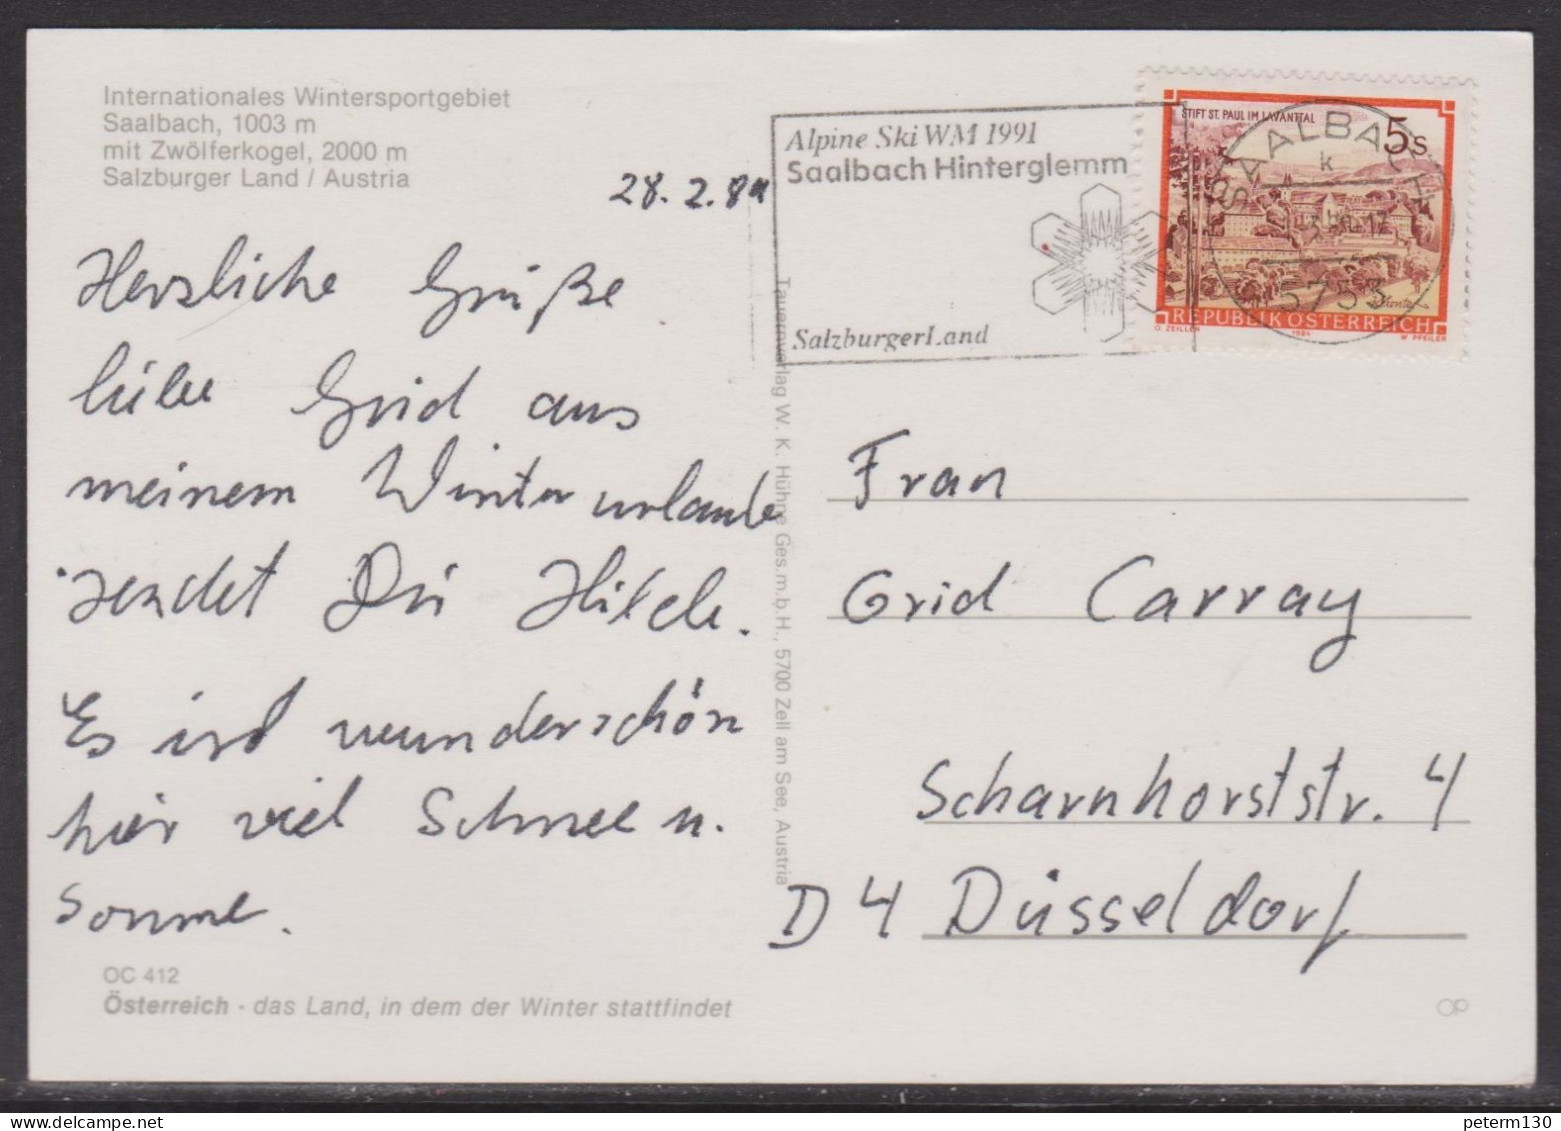 Internationales Wintersportgebiet
Saalbach, 1003 m
mit Zwölferkogel, 2000 m
Salzburger Land / Austria
28.2.89
Herzliche Grüße
liebe Grid aus
meinem Winterurlaube
sendet Dir Hilde.
Es ist wunderschön
hier viel Schnee u.
Sonne.
OC 412
Österreich - das Land, in dem der Winter stattfindet
Tauernverlag W. K. Hühne Ges.m.b.H., 5700 Zell am See, Austria
Alpine Ski WM 1991
Saalbach Hinterglemm
SalzburgerLand
STIFT ST. PAUL IM LAVANTTAL
5s
REPUBLIK ÖSTERREICH
O. ZEILLER 1984 W. PFEILER
SAALBACH
k
5753
Frau
Grid Carray
Scharnhorststr. 4
D 4 Düsseldorf
peterm130